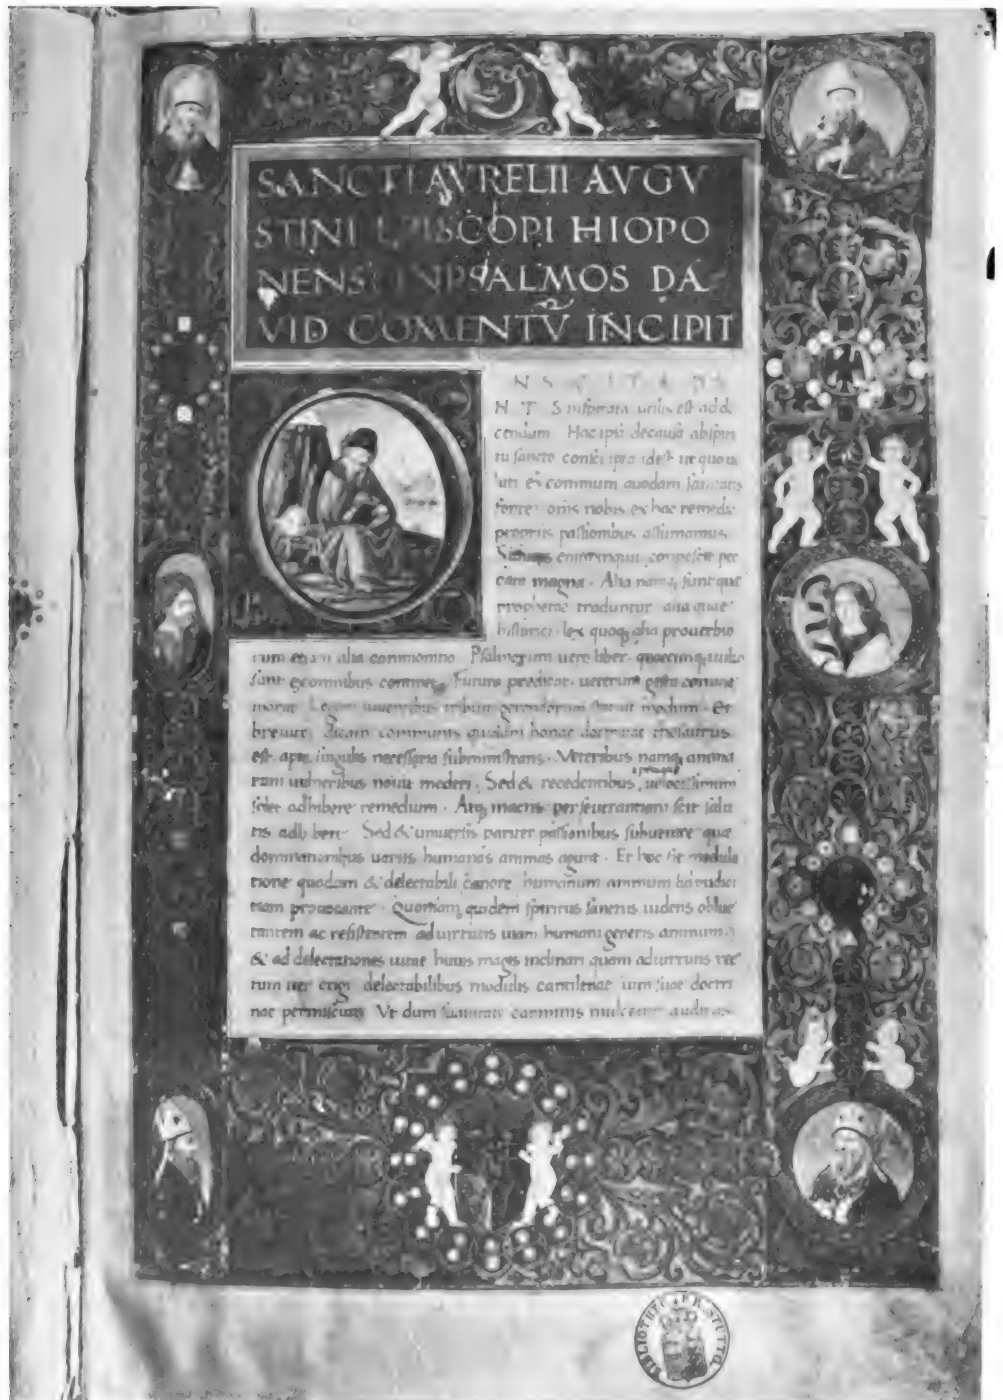 SANCTI AVRELII AVGV
STINI EPISCOPI HIOPO
NENS IN PSALMOS DA
VID COMENTV̄ INCIPIT
N S
N T S inspirata utilis est ad do
cendum Hac ipsa de causa ab spiri
tu sancto conscripta idest ut quasi
luti ex communi quodam sanitatis
fonte omnis nobis ex hoc remedia
propriis passionibus assumamus
Sanitas enim inquit compescet pec
cata magna · Alia namq; sunt quae
prophetae traduntur alia quae
historici · lex quoq; alia prouerbio
rum etiam alia commonitio Psalmorum uero liber quaecumq; utilia
sunt ex omnibus continet Futura predicat · ueterum gesta comme
morat Legem uiuentibus tribuit gerendorum statuit modum · Et
breuiter dicam communis quidam bonae doctrinae thesaurus
est apte singulis necessaria subministrans · Veteribus namq; anima
rum uulneribus nouit mederi · Sed & recedentibus uelocissimum
solet adhibere remedium · Atq; mactis perseuerantiam scit salu
tis adhibere Sed & uniuersis pariter passionibus subuenire quae
dominationibus uariis humanas animas agunt · Et hoc sit modula
tione quadam & delectabili canore humanum animum ad pudici
tiam prouocante · Quoniam quidem spiritus sanctus uidens obluc
tantem ac resistentem ad uirtutis uiam humani generis animum
& ad delectationes uitae huius magis inclinari quam ad uirtutis rec
tum iter erigi delectabilibus modulis cantilenae uim suae doctri
nae permiscuit Vt dum suauitate carminis mulcetur auditus